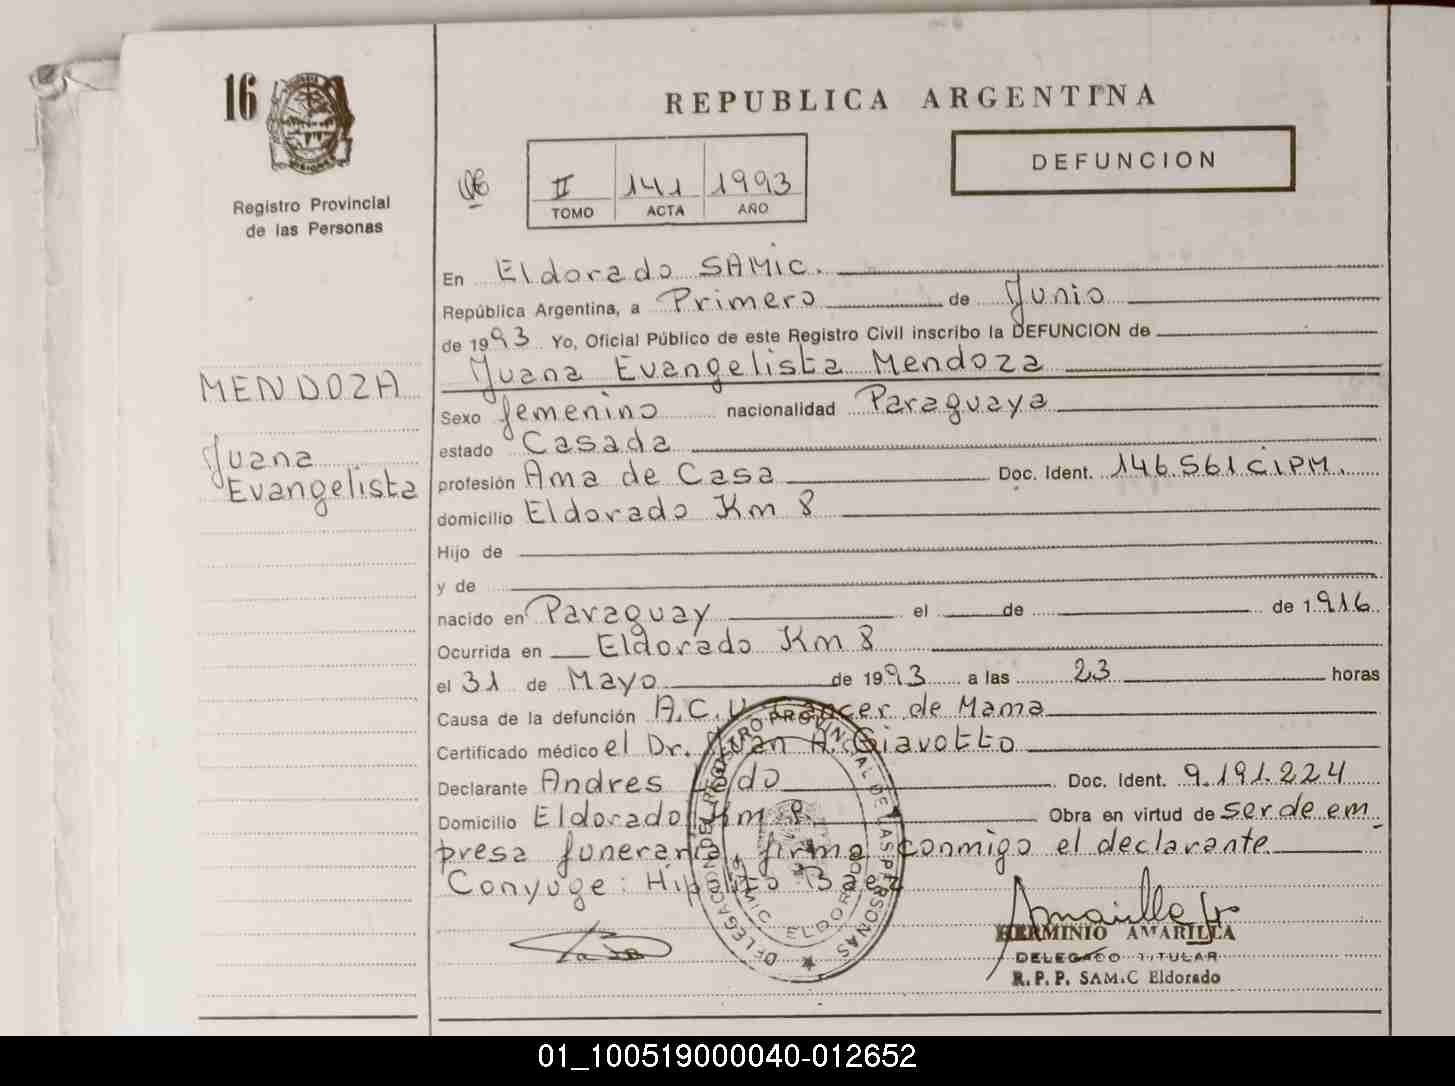 16
REPUBLICA ARGENTINA
DEFUNCION
Registro Provincial
de las Personas
II 141 1993
TOMO ACTA AÑO
En Eldorado SAMIC.
República Argentina, a Primero de Junio
de 1993 Yo, Oficial Público de este Registro Civil inscribo la DEFUNCION de
Juana Evangelista Mendoza
MENDOZA
Juana
Evangelista
Sexo femenino nacionalidad Paraguaya
estado Casada
profesión Ama de Casa Doc. Ident. 146.561 C.I.P.M.
domicilio Eldorado Km 8
Hijo de
y de
nacido en Paraguay el de de 1.916
Ocurrida en Eldorado Km 8
el 31 de Mayo de 1993 a las 23 horas
Causa de la defunción A.C.V. Cancer de Mama
Certificado médico el Dr. Juan A. Giavotto
Declarante Andres Doc. Ident. 9.191.224
Domicilio Eldorado Km 8 Obra en virtud de ser de em_
presa funeraria, firma conmigo el declarante
Conyuge: Hipolito Baez
DELEGACION DEL REGISTRO PROVINCIAL DE LAS PERSONAS
SAMIC ELDORADO
HERMINIO AMARILLA
DELEGADO TITULAR
R.P.P. SAM.C Eldorado
01_100519000040-012652